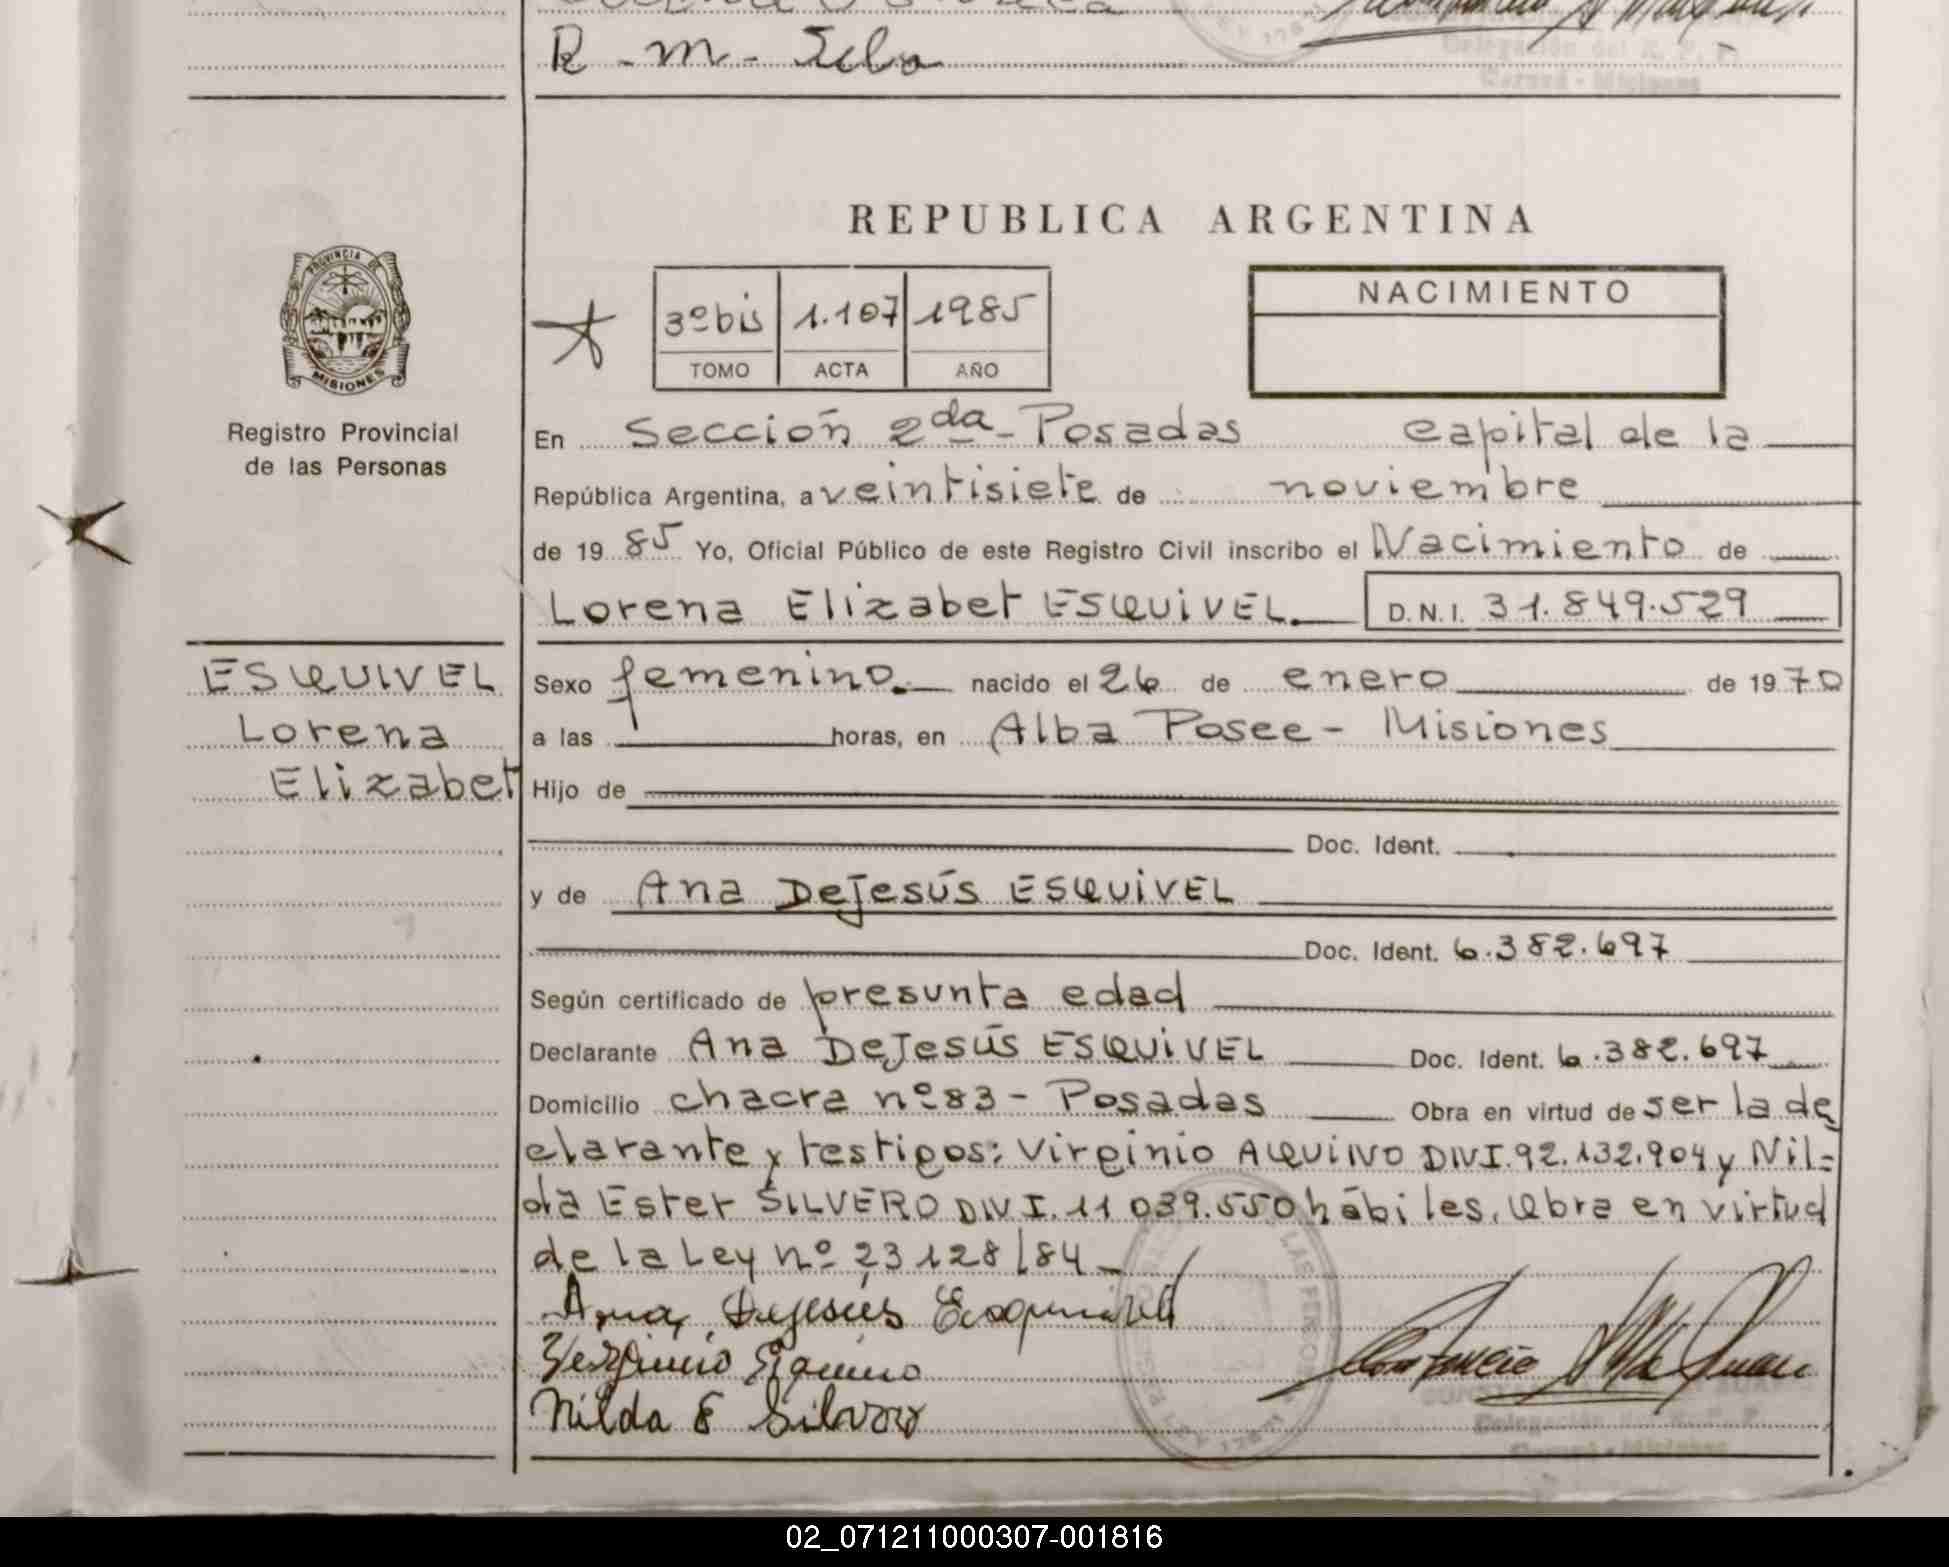 R - M - Silva
REPUBLICA ARGENTINA
PROVINCIA DE
MISIONES
Registro Provincial
de las Personas
3º bis 1.107 1985
TOMO ACTA AÑO
NACIMIENTO
En Sección 2da - Posadas capital de la
República Argentina, a veintisiete de noviembre
de 19 85 Yo, Oficial Público de este Registro Civil inscribo el Nacimiento de
Lorena Elizabet ESQUIVEL. D.N.I. 31.849.529
ESQUIVEL
Lorena
Elizabet
Sexo femenino. nacido el 26 de enero de 19 70
a las horas, en Alba Posee - Misiones
Hijo de
Doc. Ident.
y de Ana DeJesús ESQUIVEL
Doc. Ident. 6.382.697
Según certificado de presunta edad
Declarante Ana DeJesús ESQUIVEL Doc. Ident. 6.382.697
Domicilio chacra nº 83 - Posadas Obra en virtud de ser la de
clarante y testigos: Virginio AQUINO DNI. 92.132.904 y Nil=
da Ester SILVERO DNI. 11 039.550 hábiles. Obra en virtud
de la Ley nº 23 128/84 -
Ana Dejesús Esquivel
Virginio Aquino
Nilda E Silvero
Delegación del R. P. P.
02_071211000307-001816